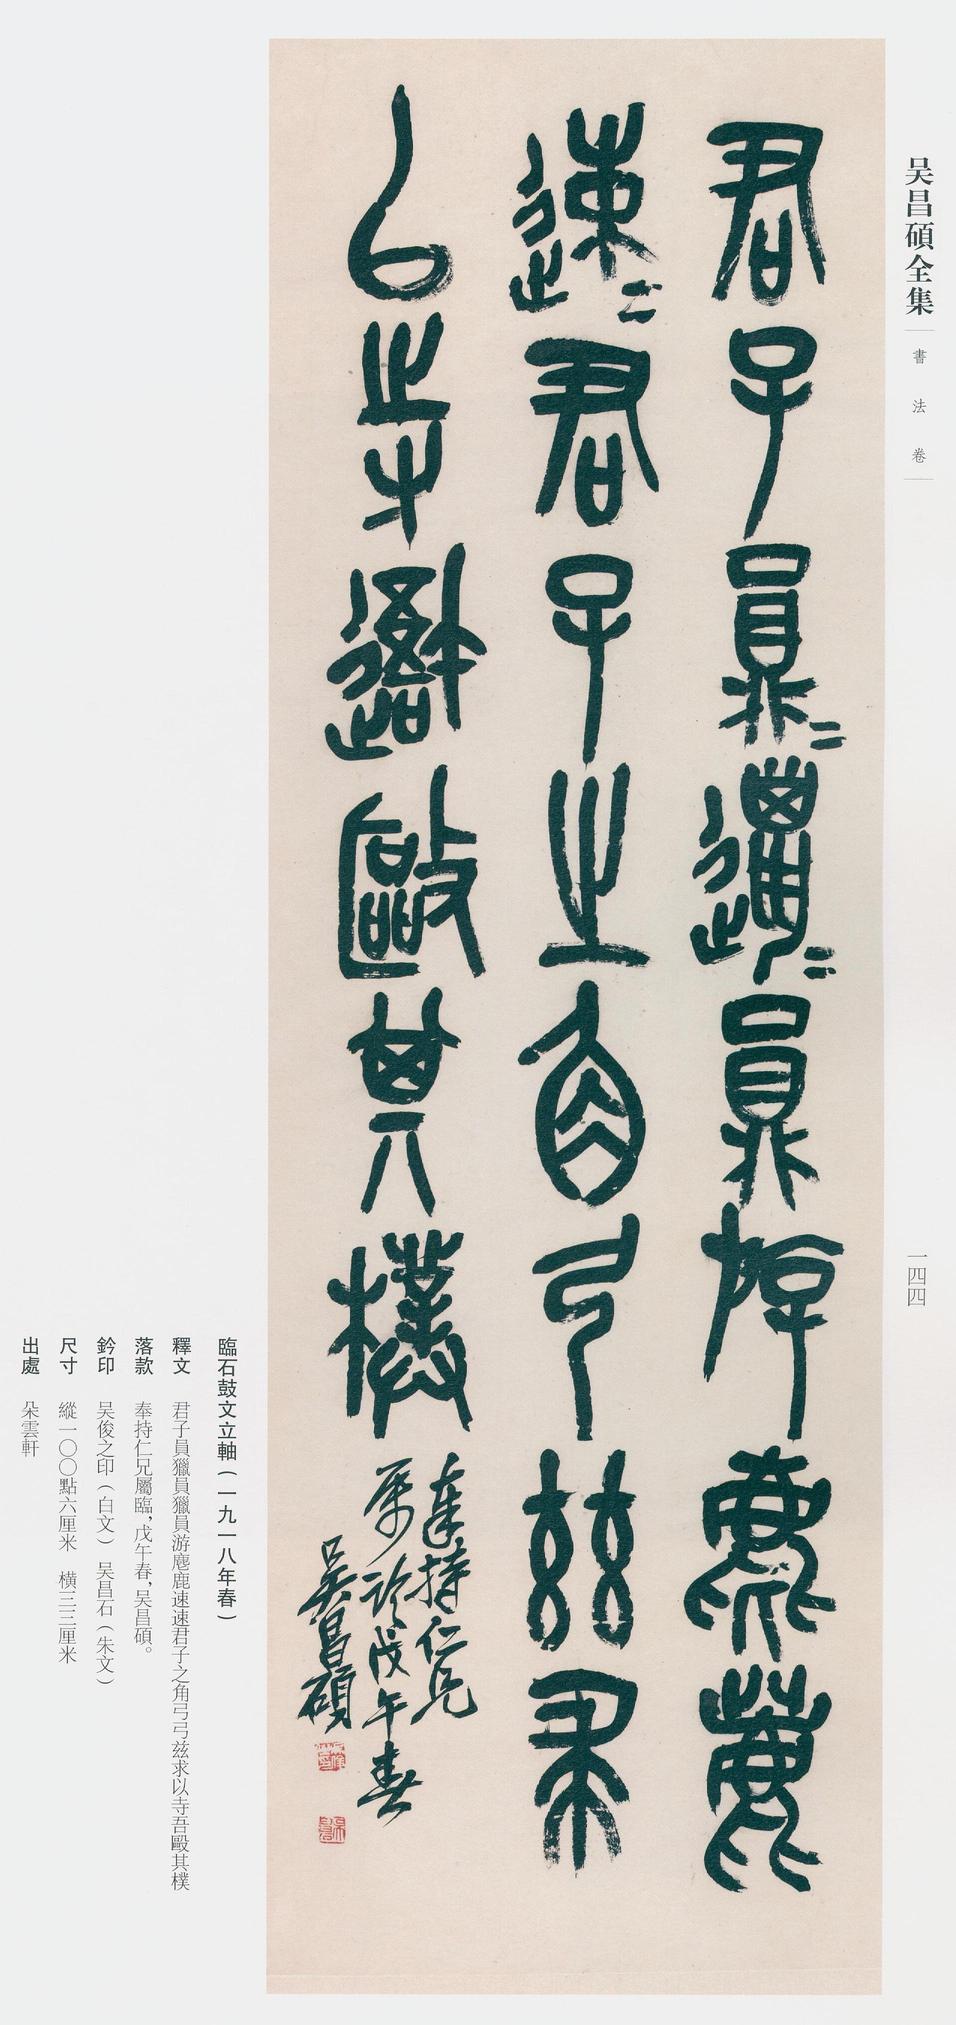 吴昌碩全集
書法卷
一四四
君子員＝邋＝員斿麀鹿
速＝君子之角弓茲求
㠯寺䢩敺其樸
奉持仁兄
属臨戊午春
吴昌碩
吴俊之印
吴昌石
臨石鼓文立軸（一九一八年春）
釋文　君子員獵員獵員游麀鹿速速君子之角弓弓兹求以寺吾毆其樸
落款　奉持仁兄屬臨，戊午春，吴昌碩。
鈐印　吴俊之印（白文）　吴昌石（朱文）
尺寸　縱一〇〇點六厘米　橫三三厘米
出處　朵雲軒